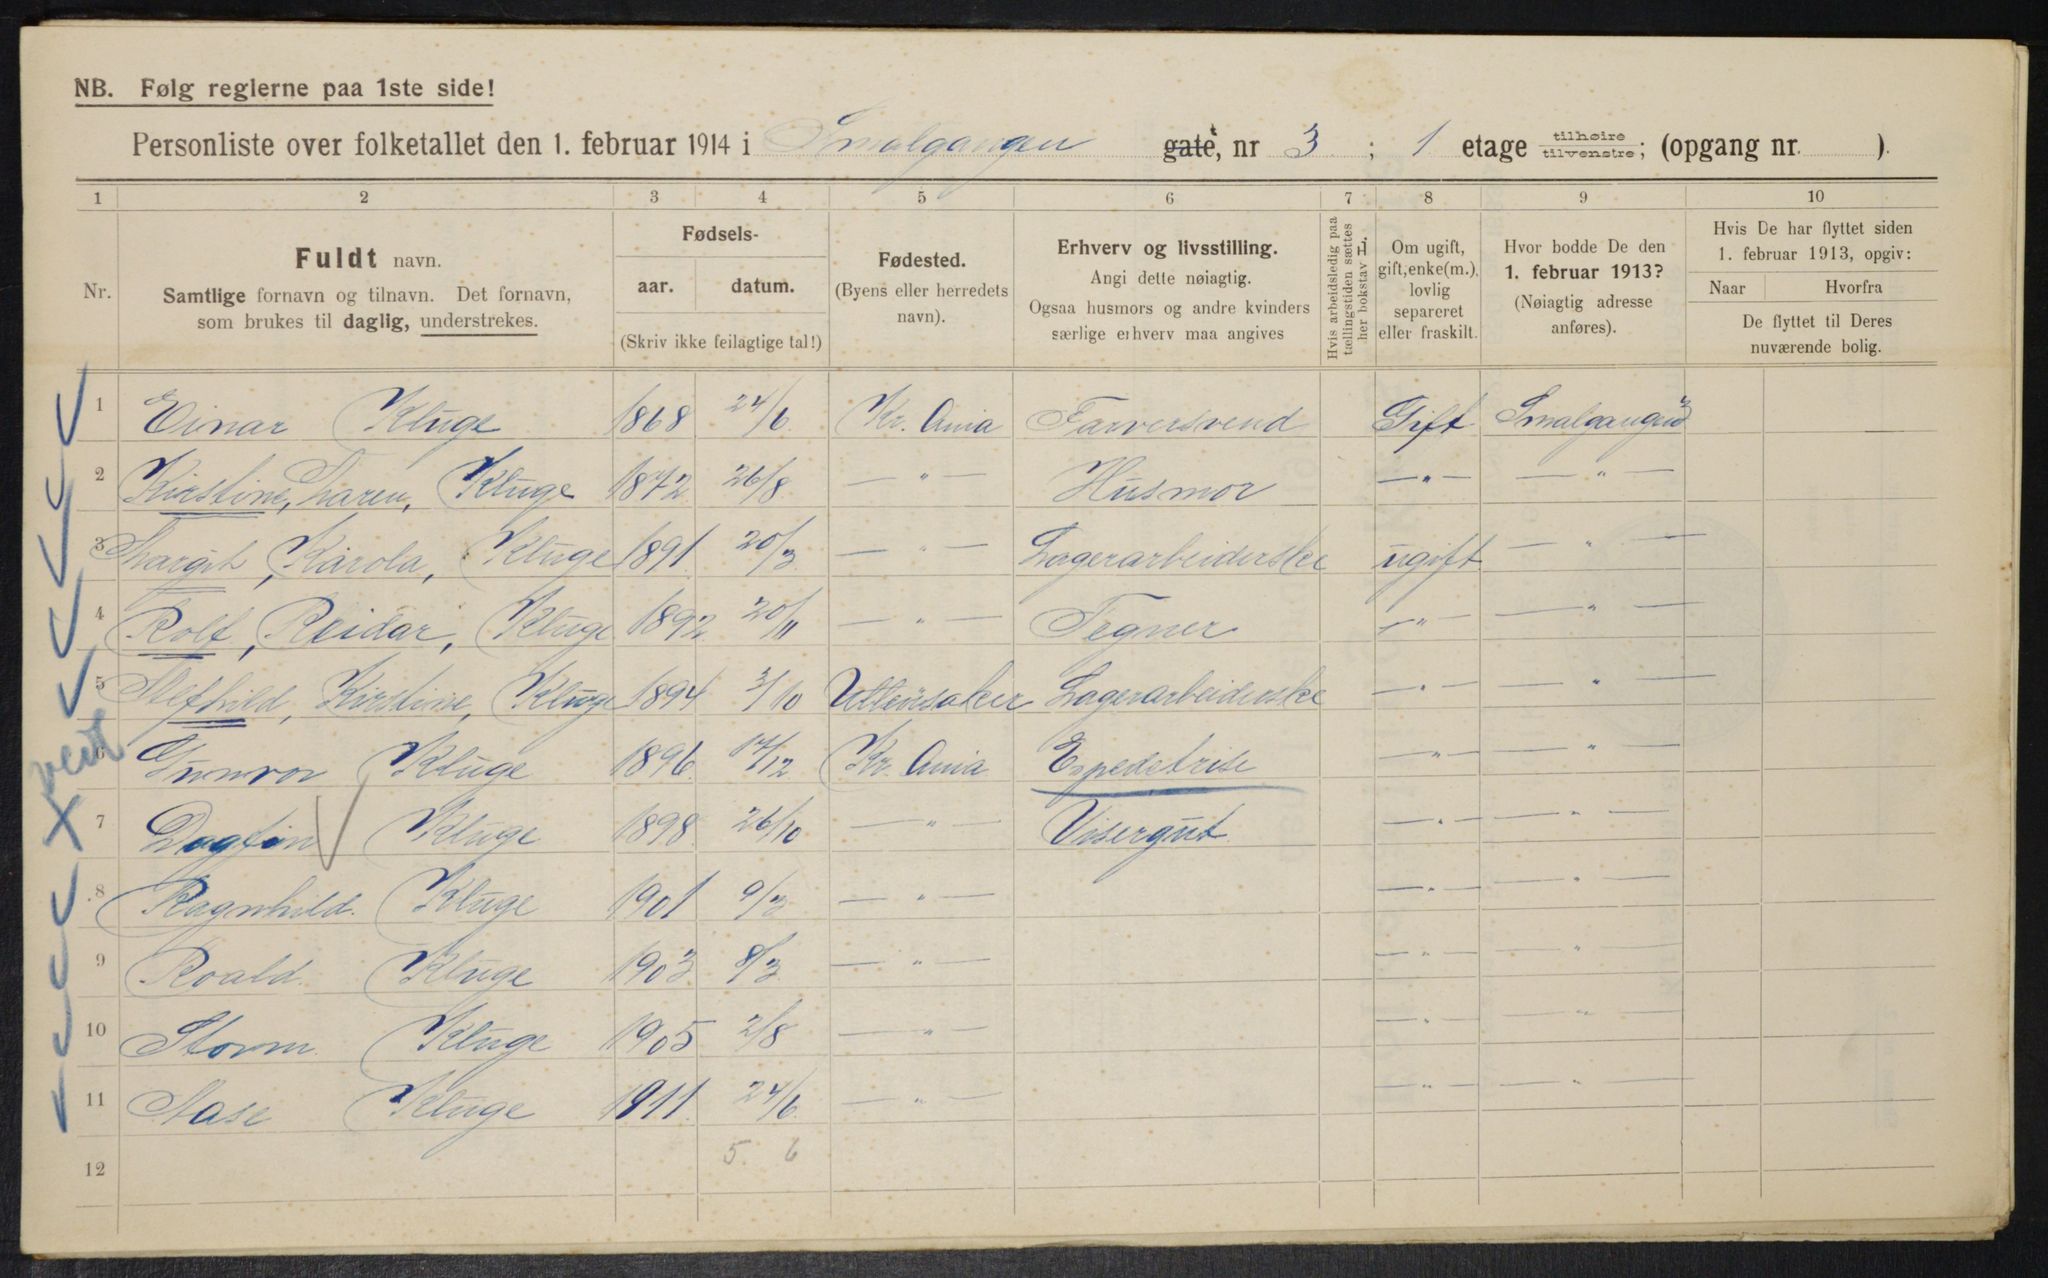 NB. Følg reglerne paa 1ste side!
Personliste over folketallet den 1. februar 1914 i Smalgangen gate, nr 3 ; 1 etage tilhøire tilvenstre; (opgang nr. ).
1 2 3 4 5 6 7 8 9 10
Nr.
Fuldt navn.
Samtlige fornavn og tilnavn. Det fornavn,
som brukes til daglig, understrekes.
Fødsels-
aar. datum.
(Skriv ikke feilagtige tal!)
Fødested.
(Byens eller herredets
navn).
Erhverv og livsstilling.
Angi dette nøiagtig.
Ogsaa husmors og andre kvinders
særlige erhverv maa angives
Hvis arbeidsledig paa
tællingstiden sættes
her bokstav L.
Om ugift,
gift, enke(m.),
lovlig
separeret
eller fraskilt.
Hvor bodde De den
1. februar 1913?
(Nøiagtig adresse
anføres).
Hvis De har flyttet siden
1. februar 1913, opgiv:
Naar Hvorfra
De flyttet til Deres
nuværende bolig.
1 Einar Kluge 1868 24/6 Kr. Ania Farversvend Gift Smalgangen 3
2 Kirstine, Kluge 1872 26/8 — " — Husmor — " — — " —
3 Karola, Kluge 1891 20/3 — " — Lagerarbeiderske ugift — " —
4 Rolf, Reidar, Kluge 1892 20/11 — " — Tegner — " — — " —
5 Alfhild, Kirstine, Kluge 1894 3/10 Ullensaker Lagerarbeiderske — " — — " —
6 Gunvor Kluge 1896 17/12 Kr. Ania Expedetrise — " — — " —
7 Dagfin Kluge 1898 26/10 — " — Visergut — " — — " —
8 Ragnhild Kluge 1901 9/3 — " — — " — — " —
9 Roald Kluge 1903 8/3 — " — — " — — " —
10 Storm Kluge 1905 2/8 — " — — " — — " —
11 Aase Kluge 1911 24/6 — " — — " — — " —
5. 6
12